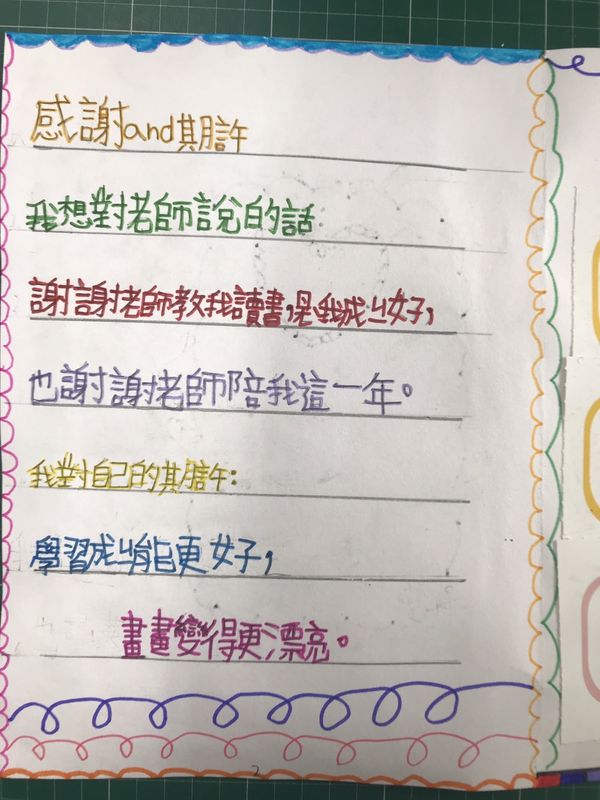 感謝and期許
我想對老師說的話
謝謝老師教我讀書,是我成ㄐ好,
也謝謝老師陪我這一年。
我對自己的期許:
學習成ㄐ能更好,
畫畫變得更漂亮。
2